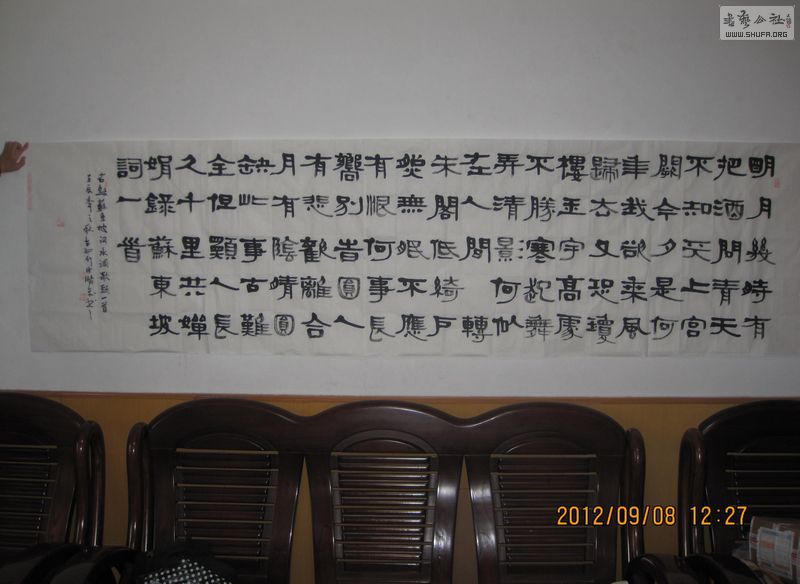 明月幾時有
把酒問青天
不知天上宮
闕今夕是何
年我欲乘風
歸去又恐瓊
樓玉宇高處
不勝寒起舞
弄清景何似
在人間 轉
朱閣低綺戶
照無眠不應
有恨何事長
嚮別旹圓人
有悲歡離合
月有陰晴圓
缺此事古難
全但願人長
久千里共嬋
娟錄蘇東坡
詞一首
右錄蘇東坡詞水調歌頭一首
壬辰年之秋
書藝公社
WWW.SHUFA.ORG
2012/09/08 12:27